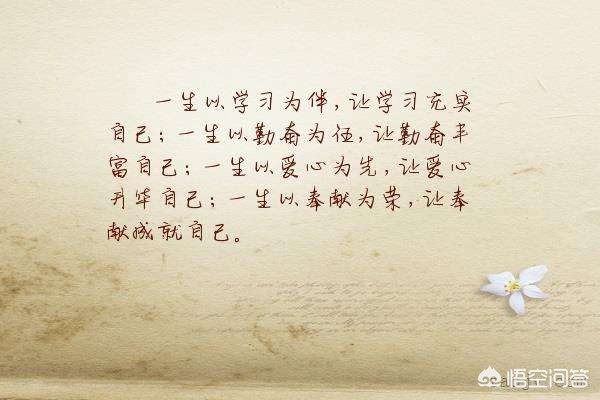 一生以学习为伴，让学习充实
自己；一生以勤奋为伍，让勤奋丰
富自己；一生以爱心为先，让爱心
升华自己；一生以奉献为荣，让奉
献成就自己。
悟空问答